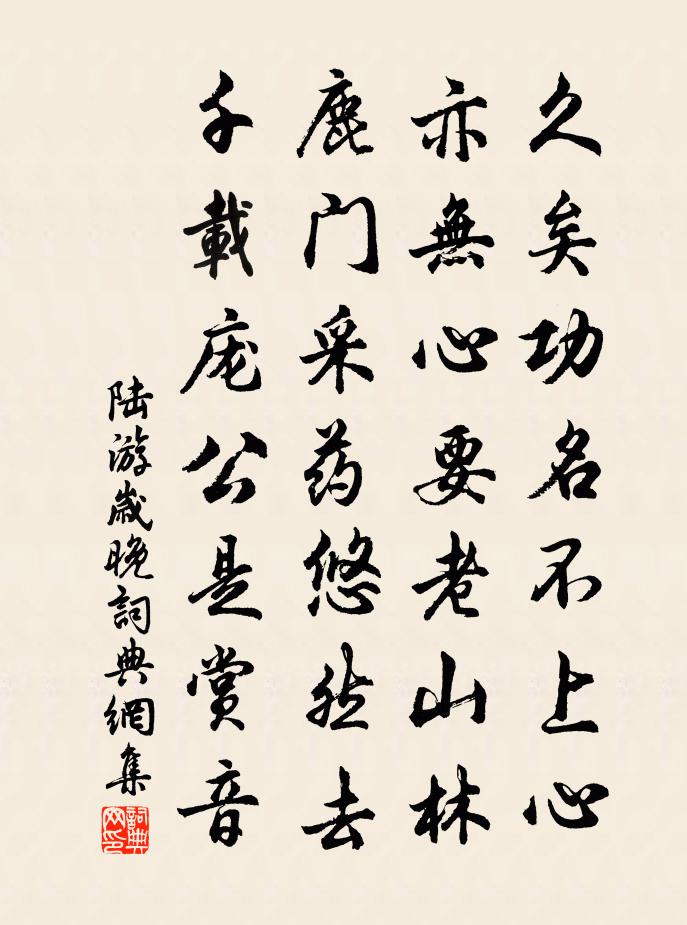 久矣功名不上心
亦無心要老山林
鹿门采药悠然去
千載庞公是赏音
陆游歳晚詞典網集
詞典网印